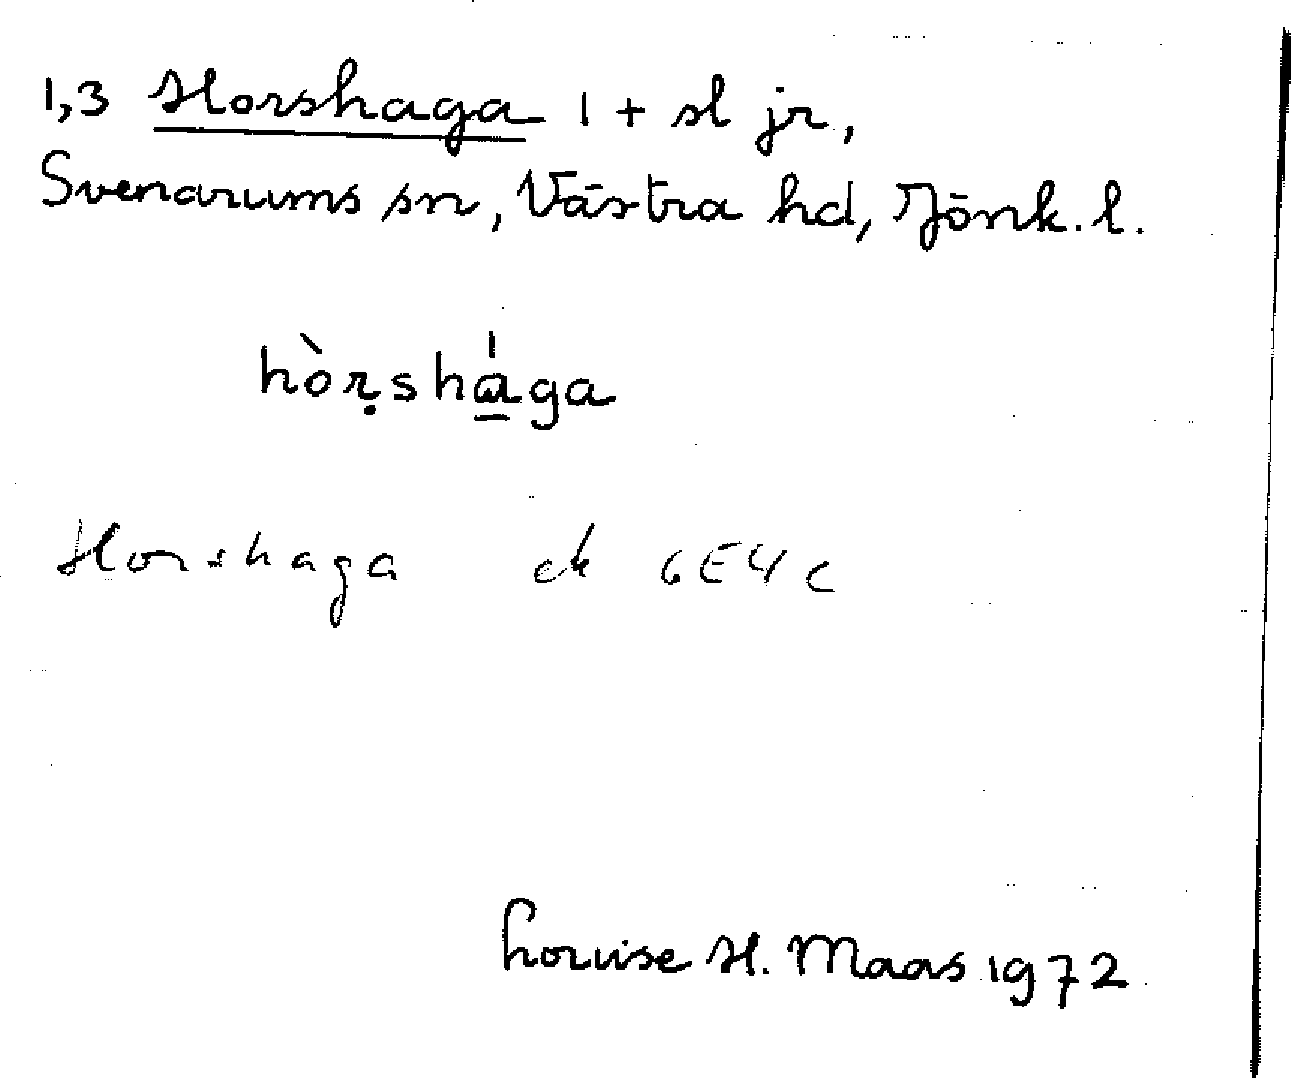 1,3 Horshaga 1 + sl jr,
Svenarums sn, Västra hd, Jönk. l.
hòṛshága
Horshaga ek 6E4c
Louise H. Maas 1972